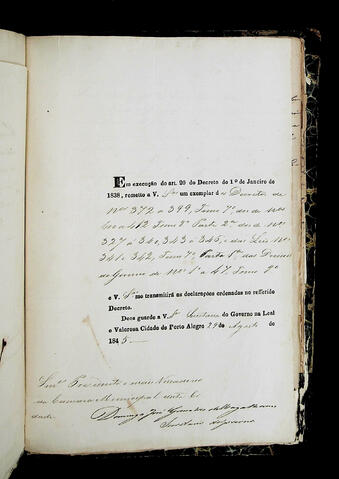 Em execução do art. 20 do Decreto de 1º de Janeiro de
1838, remetto a V. Sas um exemplar d os Decretos de
Nos 372 a 399, Tomo 7º, os de Nos
400 a 412 Tomo 8º Parte 2ª, os de Nos
327 a 340, 343 a 345, e das Leis Nos
341, 342, Tomo 7º, Parto 1ª das Decisões
do Governo de Nos 1º a 47, Tomo 9º
e V. Sas me transmitirá as declarações ordenadas no referido
Decreto.
Deos guarde a V. Sas Secretaria do Governo na Leal
e Valorosa Cidade de Porto Alegre 29 de Agosto de
1845.
Snres Presidente e mais Vereadores
da Camara Municipal desta Ci
dade.
Domingos José Gonçalves de Magalhaens
Secretario do Governo